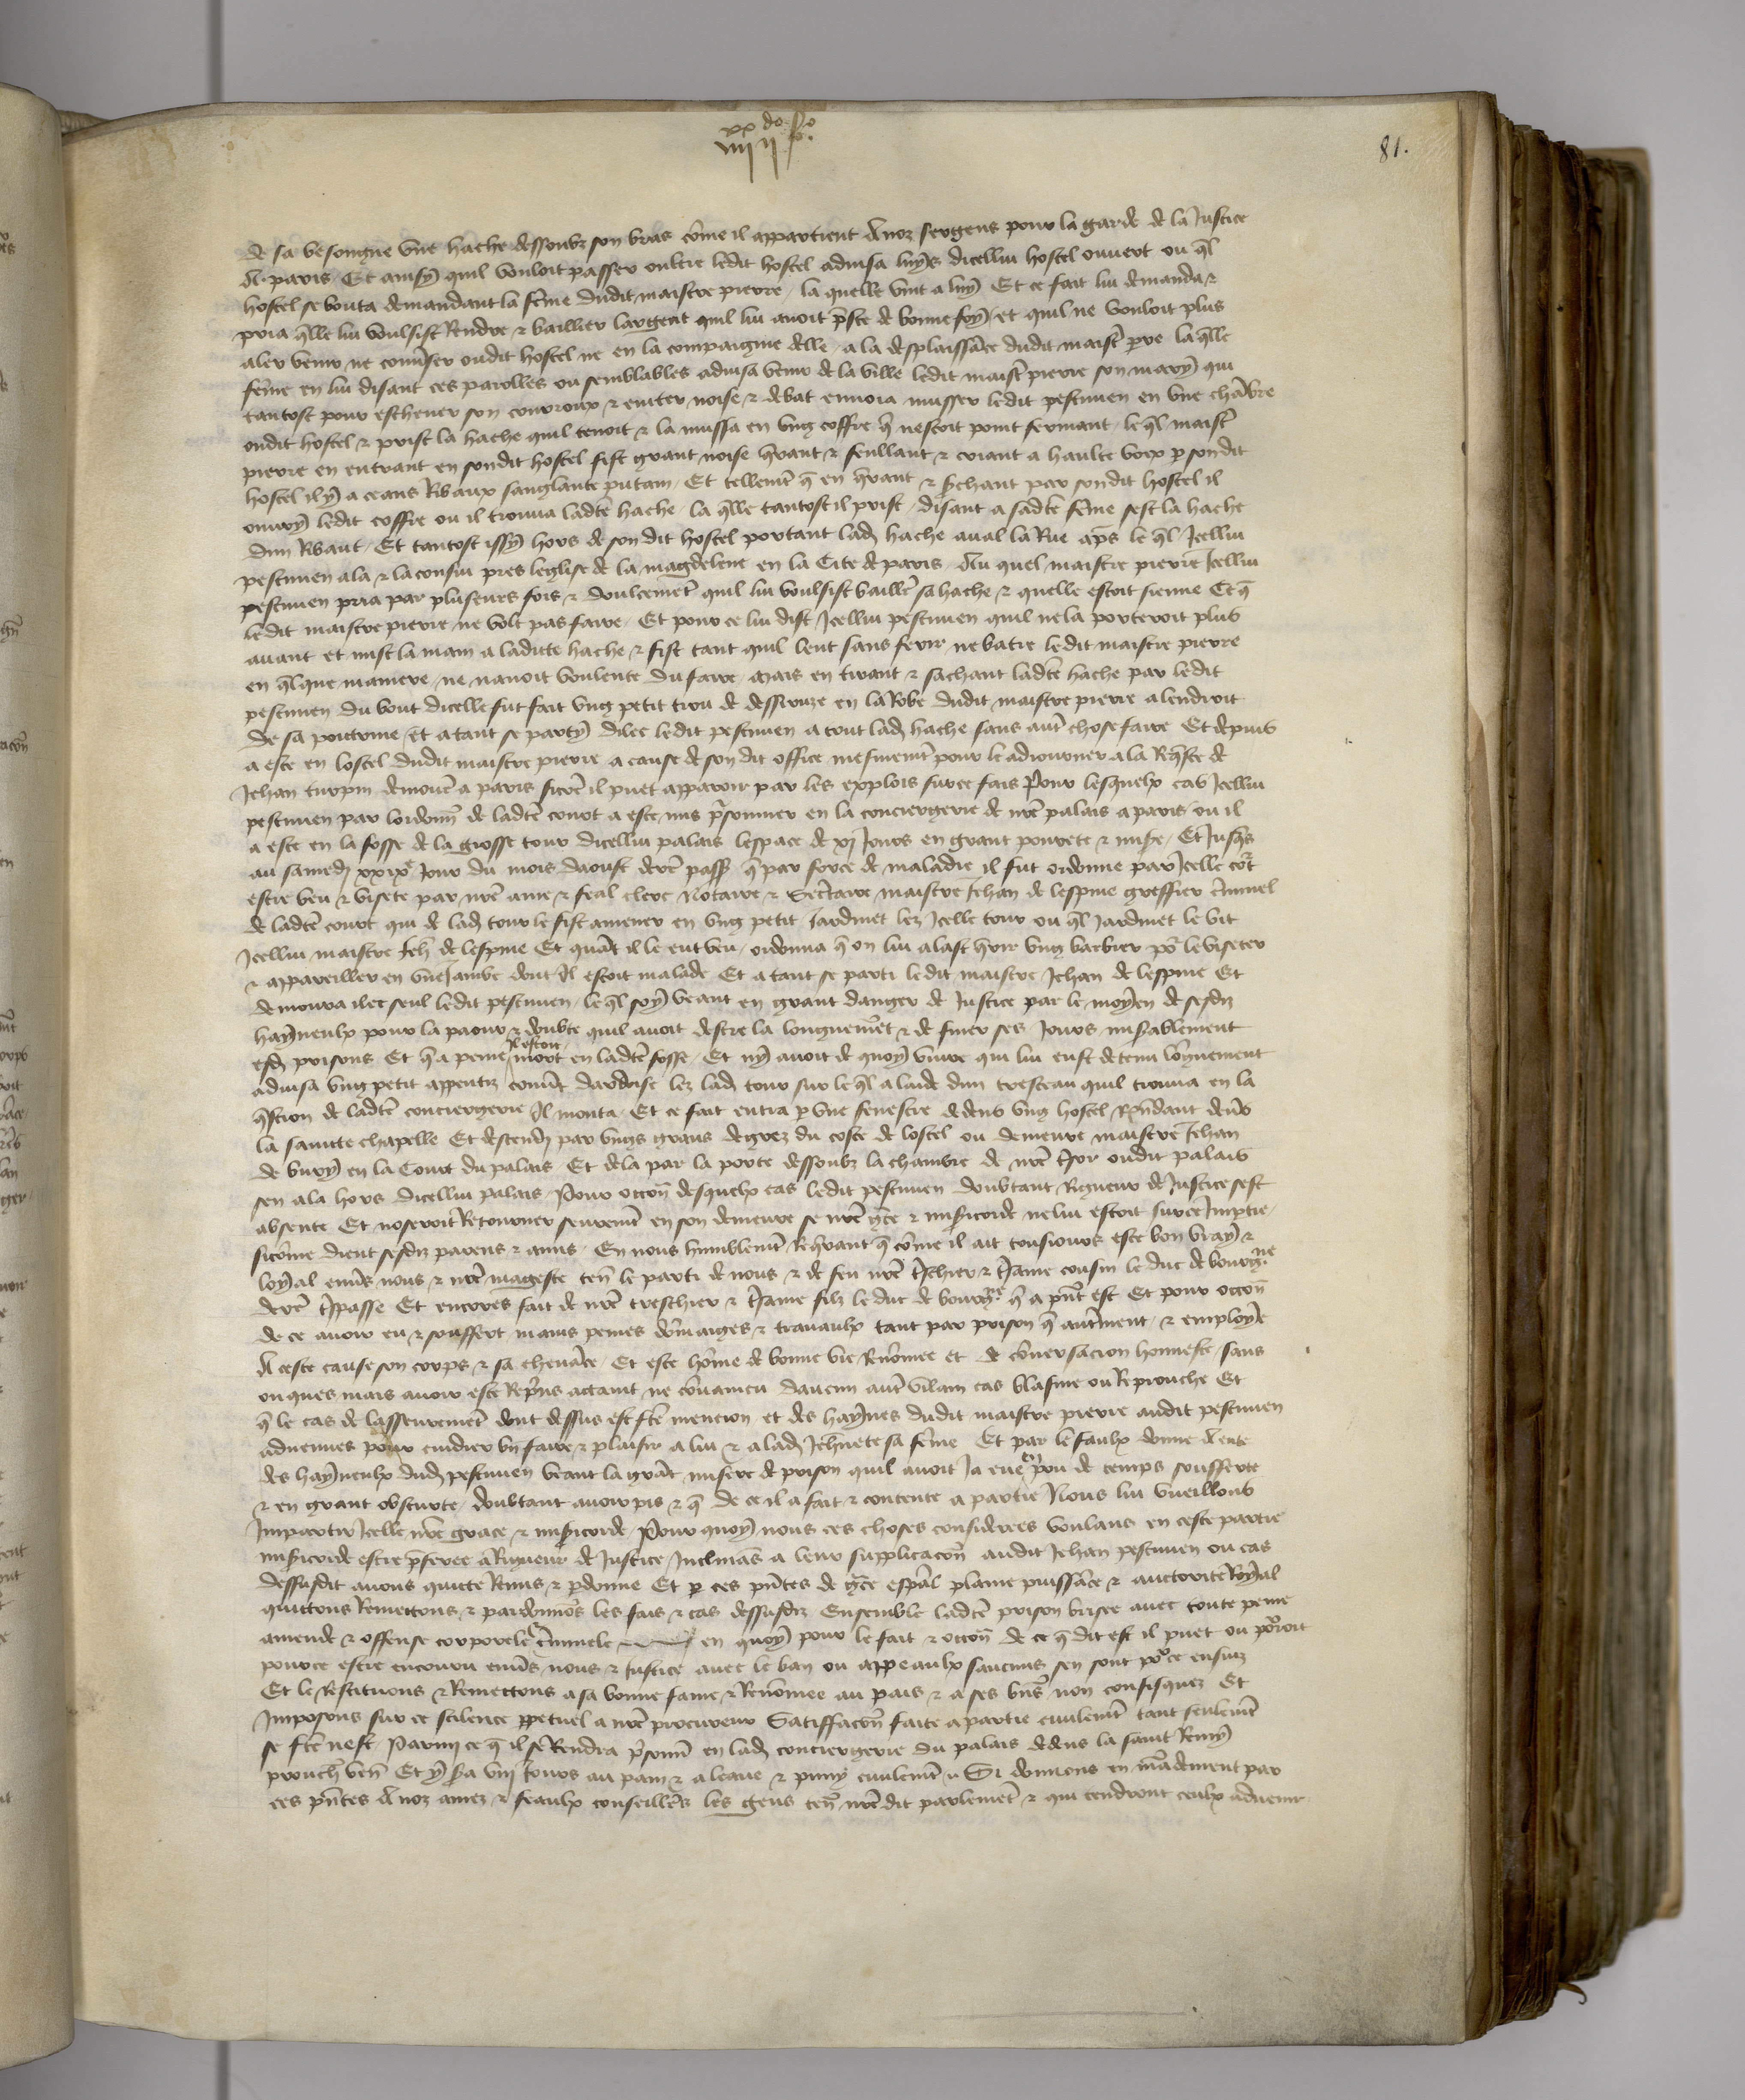 81.
de sa besongne une hache dessoubz son bras cōme il appartient A noz sergens pour la garde de la Justice
A paris Et ainsy quil vouloit passer oultre ledit hostel advisa luys dicellui hostel ouvert ou ql
hostel se bouta demandant la fēme dudit maistre pierre la quelle vint a luy Et ce fait lui demanda &
pria qlle lui voulsist Rendre & baillier largent quil lui avoit pste de bonne foy et quil ne vouloit plus
aler venir ne convser oudit hostel ne en la compaignie delle a la desplaissāce dudit maist pre la qlle
fēme en lui disant ces parolles ou semblables advisa venir de la ville ledit maist pierre son mary qui
tantost pour eschever son courroux & eviter noise & debat envoia musser ledit pestuien en une chābre
oudit hostel & prist la hache quil tenoit & la mussa en ung coffre q nestoit point fermant leql maist
pierre en entrant en sondit hostel fist grant noise qrant & feullant & criant a haulte voix p sondit
hostel il y a ceans Ribaux sanglante putain Et tellemt q en qrant & serchant par sondit hostel il
ouvry ledit coffre ou il trouva ladte hache la qlle tantost il prist disant a sadte fēme sest la hache
dun Ribaut Et tantost issy hors de son dit hostel portant lad hache aval la Rue aps le ql Icellui
pestuien ala & laconsui pres leglise de la magdelene en la Cite de paris Au quel maistre pierre Icellui
pestuien pria par plusieurs fois & doulcemēt quil lui voulsist baillr sa hache & quelle estoit sienne Ce q
ledit maistre pierre ne volt pas faire Et pour ce lui dist Icellui pestuien quil ne la porteroit plus
avant et mist la main a ladicte hache & fist tant quil leut sans ferir ne batre ledit maistre pierre
en qlque maniere ne navoit voulente du faire mais en tirant & sachant ladte hache par ledit
pestuien du bout dicelle fut fait ung petit trou de dessireure en la Robe dudit maistre pierre a lendroit
de sa poictrine Et atant se party dilec ledit pestuien a tout lad hache sans aut chose faire Et depuis
a este en lostel dudit maistre pierre a cause de son dit office mesmemt pour le adiourner a la Reqste de
Jehan turpin demourāt a paris sicōe il puet apparoir par les explois sur ce fais Pour lesquelx cas Icellui
pestuien par lordonn de ladte court a este mis prisonnier en la conciergerie de nre palais a paris ou il
a este en la fosse de la grosse tour dicellui palais lespace de xj Jours en grant povrete & mise Et Jusqs
au samedi xxixe Jour du mois daoust derr passe q par force de maladie il fut ordonne par Icelle cort
estre veu & visete par nre ame & feal clerc Notaire & Secretaire maistre Jehan de lespine greffier criminel
de ladte court qui de lad tour le fist amener en ung petit Jardinet lez Icelle tour ou ql Jardinet le vit
Icellui maistre Jeh de lespine Et quāt il le eut veu ordonna q on lui alast qrir ung barbier por le viseter
& appareiller en une Jambe dont Il estoit malade Et a tant se parti ledit maistre Jehan de lespine Et
demoura ilec seul ledit pestuien leql soy veant en grant danger de Justice par le moyen de sesdiz
hayneulx pour la paour & doubte quil avoit destre la longuemēt & de finer ses Jours misablement
esd prisons Et q a peine Il estoit mort en ladte fosse Et ny avoit de quoy vivre qui lui eust detenu longuement
advisa ung petit appentiz couvt dardoise lez lad tour sur le ql a laide dun tresteau quil trouva en la
qstion de ladte conciergerie Il monta Et ce fait entra p une fenestre dedens ung hostel Respondant devs
la saincte chapelle Et descendi par ungs grans degrez du coste de lostel ou demeure maistre Jehan
de vivry en la Court du palais Et dela par la porte dessoubz la chambre de nre tsor oudit palais
sen ala hors dicellui palais Pour occon desquelx cas ledit pestuien doubtant Rigueur de Justice sest
absente Et noseroit Retourner seuremt en son demeure se nre gce & misicorde ne lui estoit sur ce Imptie
sicōme dient sesdiz parens & amis En nous humblemt Reqrant q cōme il ait tousiours este bon vray &
loyal envs nous & nre mageste ten le parti de nous & de feu nre tschier & tsame cousin le duc de bourgne
derr tspasse Et encores fait de nre treschier & tsame filz le duc de bourgne q a pnt est Et pour occon
de ce avoir eu & souffert mains peines dōmaiges & travaulx tant par prison q autrment & employe
A ceste cause son corps & sa chevāce Et este hōme de bonne vie Renōmee et de cōversacion honneste sans
onques mais avoir este Reprins actaint ne cōvaincu daucun aut vilain cas blasme ou Reprouche Et
q le cas de lasseuremēt dont dessus est fte mencion et des haynes dudit maistre pierre audit pestuien
advenues pour cuidier bn faire & plaisir a lui & a lad Jehnete sa fēme Et par le faulx donne A ente
des hayneulx dud pestuien veant la grāt misere de prison quil avoit Ja eue en pou de temps soufferte
& en grant obscurte doubtant avoir pis & q de ce il a fait & contente a partie Nous lui vueillons
Impartir Icelle nre grace & misicorde Pour quoy nous ces choses considerees voulans en ceste partie
misicorde estre pferee a Rigueur de Justice Inclinās a leur supplicacōn audit Jehan pestuien ou cas
dessusdit avons quicte Remis & pdonne Et p ces pntes de gce espāl plaine puissāce & auctorite Royal
quictons Remettons & pardonnōs les fais & cas dessusdiz Ensemble ladte prison brisee avec toute peine
amende & offense corporele criminele en quoy pour le fait & occon de ce q dit est il puet ou porroit
pource estre encouru envs nous & Justice avec le ban ou appeaulx saucuns sen sont por ce ensuiz
Et le Restituons & Remettons a sa bonne fame & Renōmee au pais & a ses bns non confisquez Et
Imposons sur ce scilence ppetuel a nre procureur Satiffacōn faite a partie civilemt tant seulemt
se fte nest Parmy ce q il se Rendra prisonn en lad conciergerie du palais dedens la saint Remy
prouch ven Et y sa viij Jours au pain & a leaue & puny civilemt Si donnons en mādement par
ces pntes A noz amez & feaulx conseillrs les gens ten nredit parlemēt & qui tendront ceulx advenir